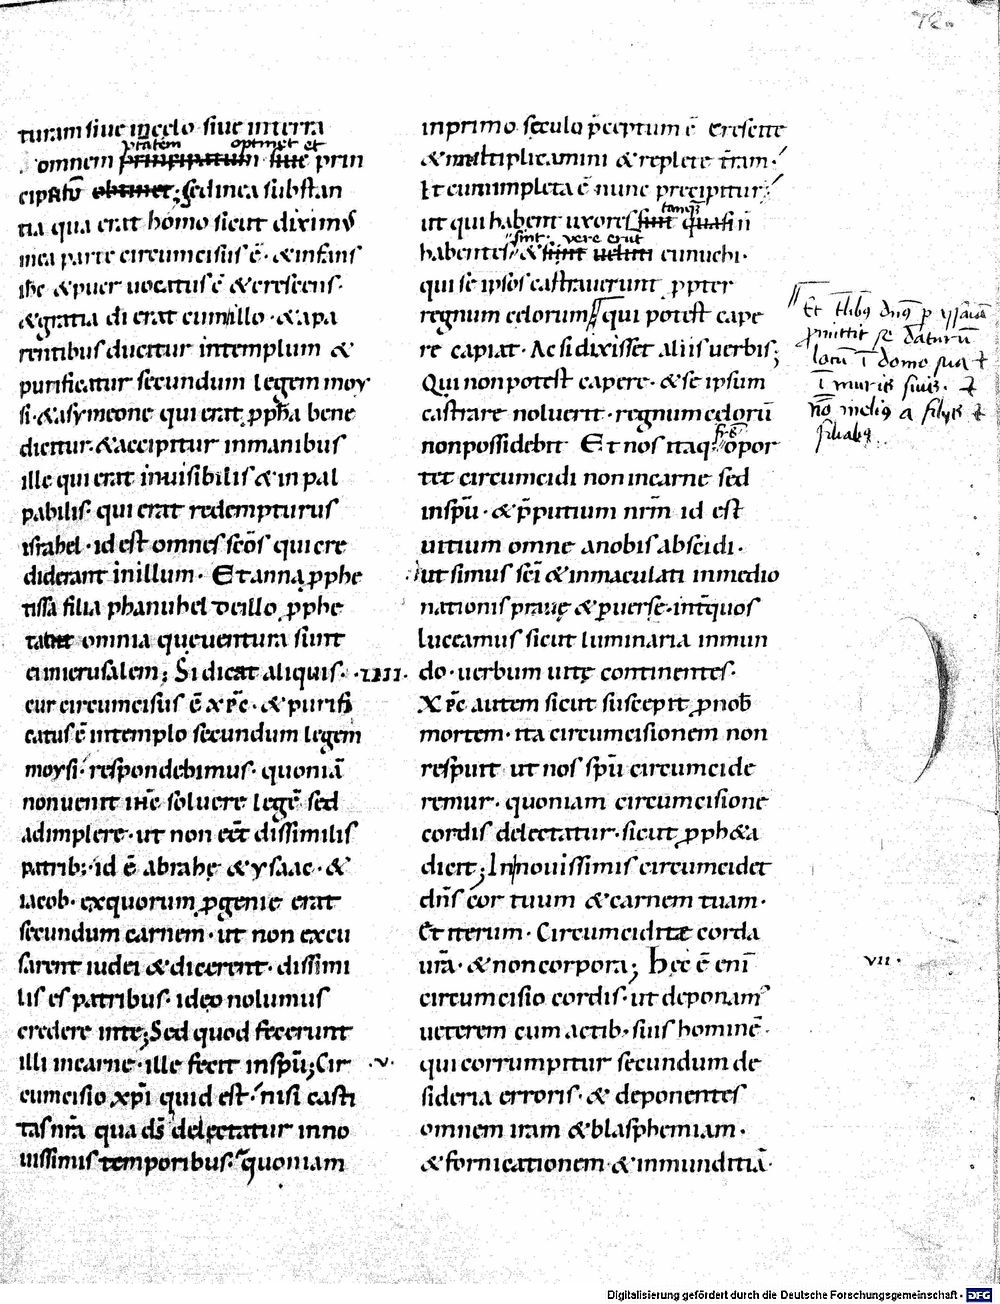 72.
turam siue incelo siue interra
ptatem optinet et
omnem principatum siue prin
cipatū obtinet; sedinea substan
tia qua erat homo sicut diximꝰ
inea parte circumcisus ē· &infans
ihc &puer uocatus ē &crescens·
&gratia di erat cumillo· &apa
rentibus ducitur intemplum &
purificatur secundum legem moy
si·&asymeone qui erat ꝓpha bene
dicitur·&accipitur inmanibus
ille qui erat inuisibilis &inpal
pabilis· qui erat redempturus
israhel·id est omnes scōs qui cre
diderant inillum· Etanna ꝓphe
tissa filia phanuhel deillo ꝓphe
omnia queuentura sunt
eimierusalem; Si dicat aliquis· ·IIII·
cur circumcisus ē xp̄c·&purifi
catus ē intemplo secundum legem
moysi·respondebimus·quoniā
nonuenit ihc soluere legē sed
adimplere·ut non eēt dissimilis
patrib;·id ē abrahę &ysaac·&
iacob·exquorum ꝓgenie erat
secundum carnem·ut non excu
sarent iudei &dicerent·dissimi
lis es patribus·ideo nolumus
credere inte; Sed quod fecerunt
illi incarne·ille fecit insp̄u; Cir ·V·
cumcisio xp̄i quid est·nisi casti
tas nr̄a qua ds̄ delectatur inno
uissimis temporibus·quoniam
inprimo seculo p̄ceptum ē Crescite
&multiplicamini &replete t̄ram·
Et cumimpleta ē nunc precipitur·
tamq̄
ut qui habent uxores sint quasi n̄
sint· vere erut
habentes &sint ueluti eunuchi·
qui se ipsos castrauerunt ꝓpter
regnum celorum qui potest cape
re capiat·Ac si dixisset aliis uerbis;
Qui nonpotest capere·&se ipsum
castrare noluerit·regnum celorū
frs̄
nonpossidebit Et nos itaq; opor
tet circumcidi non incarne sed
insp̄u·&p̄putium nrm̄ id est
uitium omne anobis abscidi·
ut simus sc̄i &inmaculati inmedio
nationis prauę &ꝑuerse·int̄quos
luceamus sicut luminaria inmun
do·uerbum uitę continentes·
Xp̄c autem sicut suscepit ꝓnob̄
mortem·ita circumcisionem non
respuit ut nos sp̄u circumcide
remur·quoniam circumcisione
cordis delectatur·sicut ꝓph&a
dicit; Innouissimis circumcidet
dn̄s cor tuum &carnem tuam·
Et iterum·Circumciditæ corda
ur̄a·&noncorpora; Hec ē enī VII·
circumcisio cordis·ut deponamꝰ
ueterem cum actib·suis hominē·
qui corrumpitur secundum de
sideria erroris·& deponentes
omnem iram &blasphemiam·
&fornicationem·&inmunditiā·
Et dn̄s p ysaiā
ꝓmittit se daturū
locū ī domo sua
ī muris suis·
nō melius a filijs
filiabꝰ
Digitalisierung gefördert durch die Deutsche Forschungsgemeinschaft · DFG